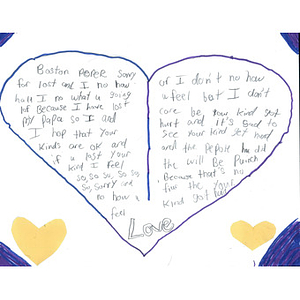 Boston peper Sorry
for lost and I no how
hall I no what u going
lot Because I have lost
my Papa so I and
I hope that your
kinds are ok and
if u lost your
kind I feel
so, so, so, so, so
so, sorry and
no how u
feel
or I don't no how
u feel but I don't
care be your kind got
hurt and it's Bad to
see your kind get hood
and the pepole ho did
the will Be Punch
Because that's no
fun the you
kind got
Love